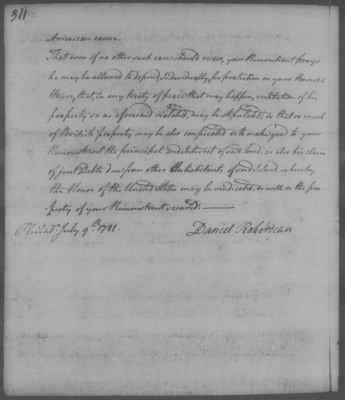 311
American cause.
That even if no other such case should occur, your Remonstrant prays
he may be allowed to depend, individually, for protection on your Honorable
House, that, in any treaty of peace that may happen, restitution of his
property so as aforesaid violated, may be stipulated, or that so much
of British property may be also confiscated as to make good to your
Remonstrant the principal and interest of said land, as also his claim
of just Debts due from other Inhabitants of said Island, whereby
the Honor of the United States may be vindicated, as well as the pro-
perty of your Remonstrant secured.
Philad.ᵃ July 9.th 1781.
Daniel Roberdeau